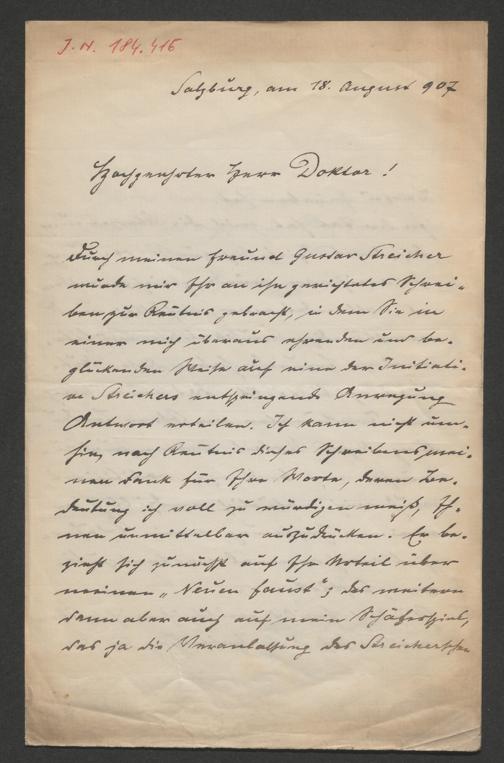 J.N. 184.416
Salzburg, am 18. August 907
Hochgeehrter Herr Doktor!
Durch meinen Freund Gustav Streicher
wurde mir Ihr an ihn gerichtetes Schrei-
ben zur Kenntnis gebracht, in dem Sie in
einer mich überaus ehrenden und be-
glückenden Weise auf eine der Initiati-
ve Streichers entspringende Anregung
Antwort erteilen. Ich kann nicht um-
hin, nach Kenntnis dieses Schreibens mei-
nen Dank für Ihre Worte, deren Be-
deutung ich voll zu würdigen weiß, Ih-
nen unmittelbar auszudrücken. Er be-
zieht sich zunächst auf Ihr Urteil über
meinen „Neuen Faust"; des weitern
dann aber auch auf mein Schäferspiel,
das ja die Veranlassung des Streicherschen